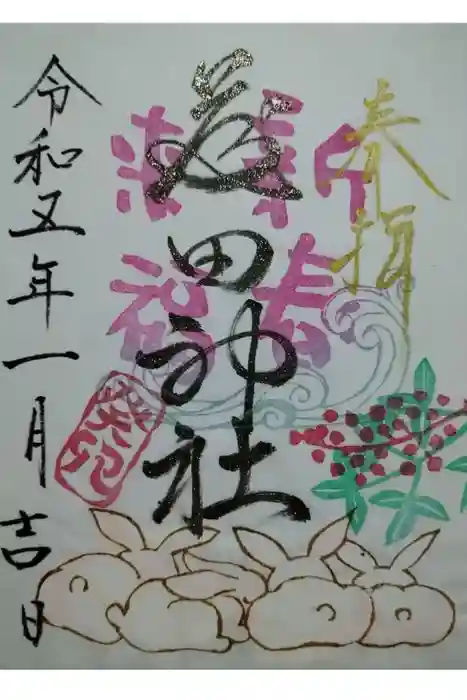 奉拝
新春
田神社
癸卯
令和五年一月吉日